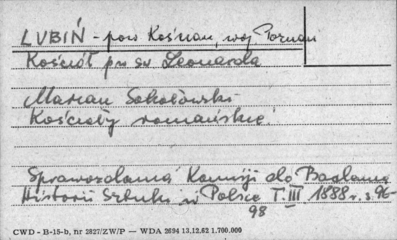 LUBIŃ - pow Kościan, woj. Poznań
Kościół pw św Leonarda
Marian Sokołowski
Kościoły romańskie
Sprawozdania Komisji do Badania
Historii Sztuki w Polsce T. III 1888 r. s. 96-
98
CWD - B-15-b, nr 2827/ZW/P — WDA 2694 13.12.62 1.700.000